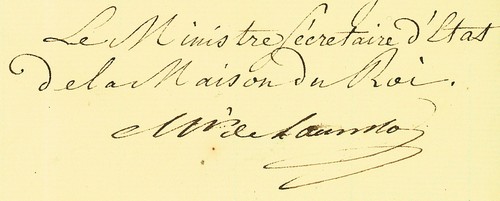 Le Ministre Sécretaire d'Etat
de la Maison du Roi.
Mis de Lauriston